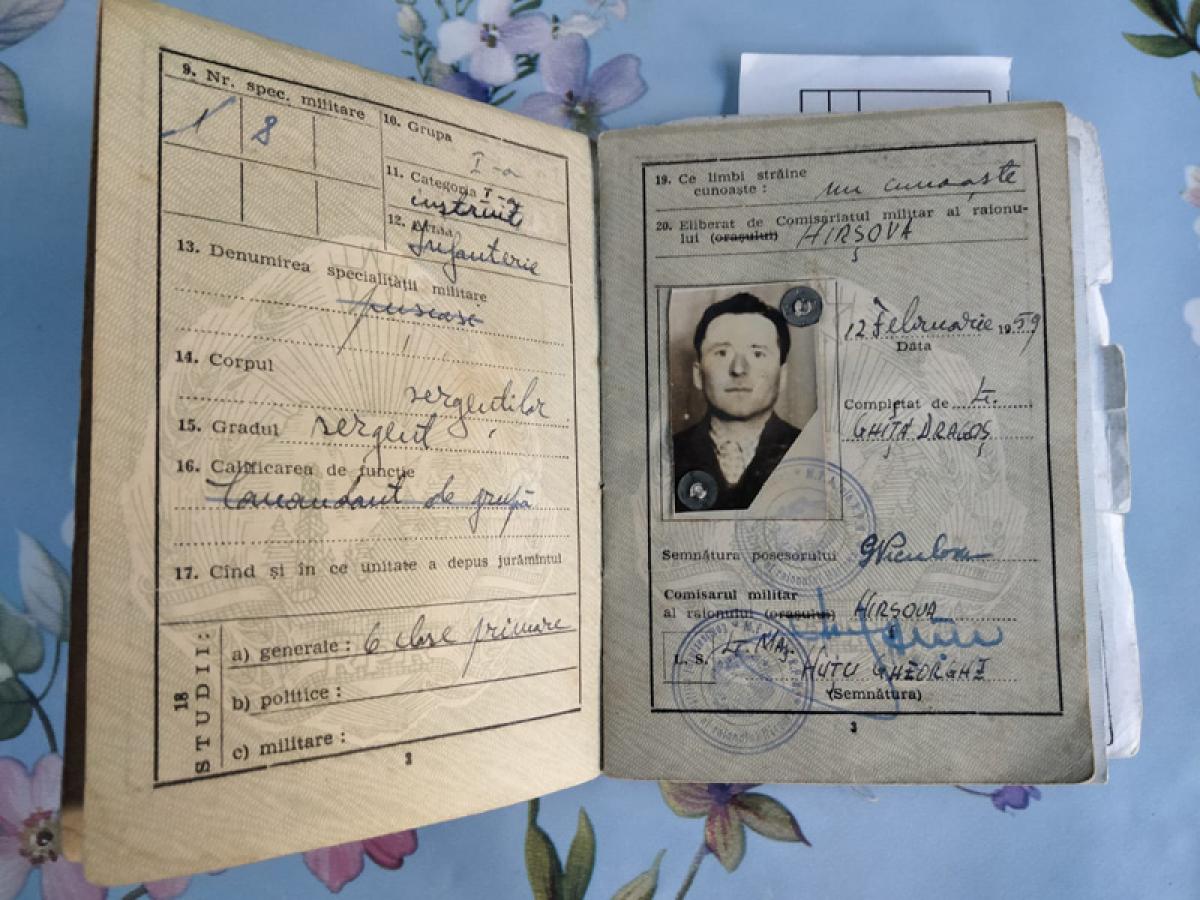 9. Nr. spec. militare
1 8
10. Grupa
I-a
11. Categoria I
instruit
12. Arma
Infanterie
13. Denumirea specialității militare
14. Corpul
sergenților
15. Gradul sergent
16. Calificarea de funcție
Comandant de grupă
17. Cînd și în ce unitate a depus jurămîntul
18
STUDII:
a) generale : 6 clase primare
b) politice :
c) militare :
3
19. Ce limbi străine
cunoaște : nu cunoaște
20. Eliberat de Comisariatul militar al raionu-
lui (orașului) HIRȘOVA
12 Februarie 1959
Data
Completat de Lt.
GHIȚĂ DRAGOȘ
Semnătura posesorului
Comisarul militar
al raionului (orașului) HIRȘOVA
L. S. Lt. Maj.
HUȚU GHEORGHE
(Semnătura)
3